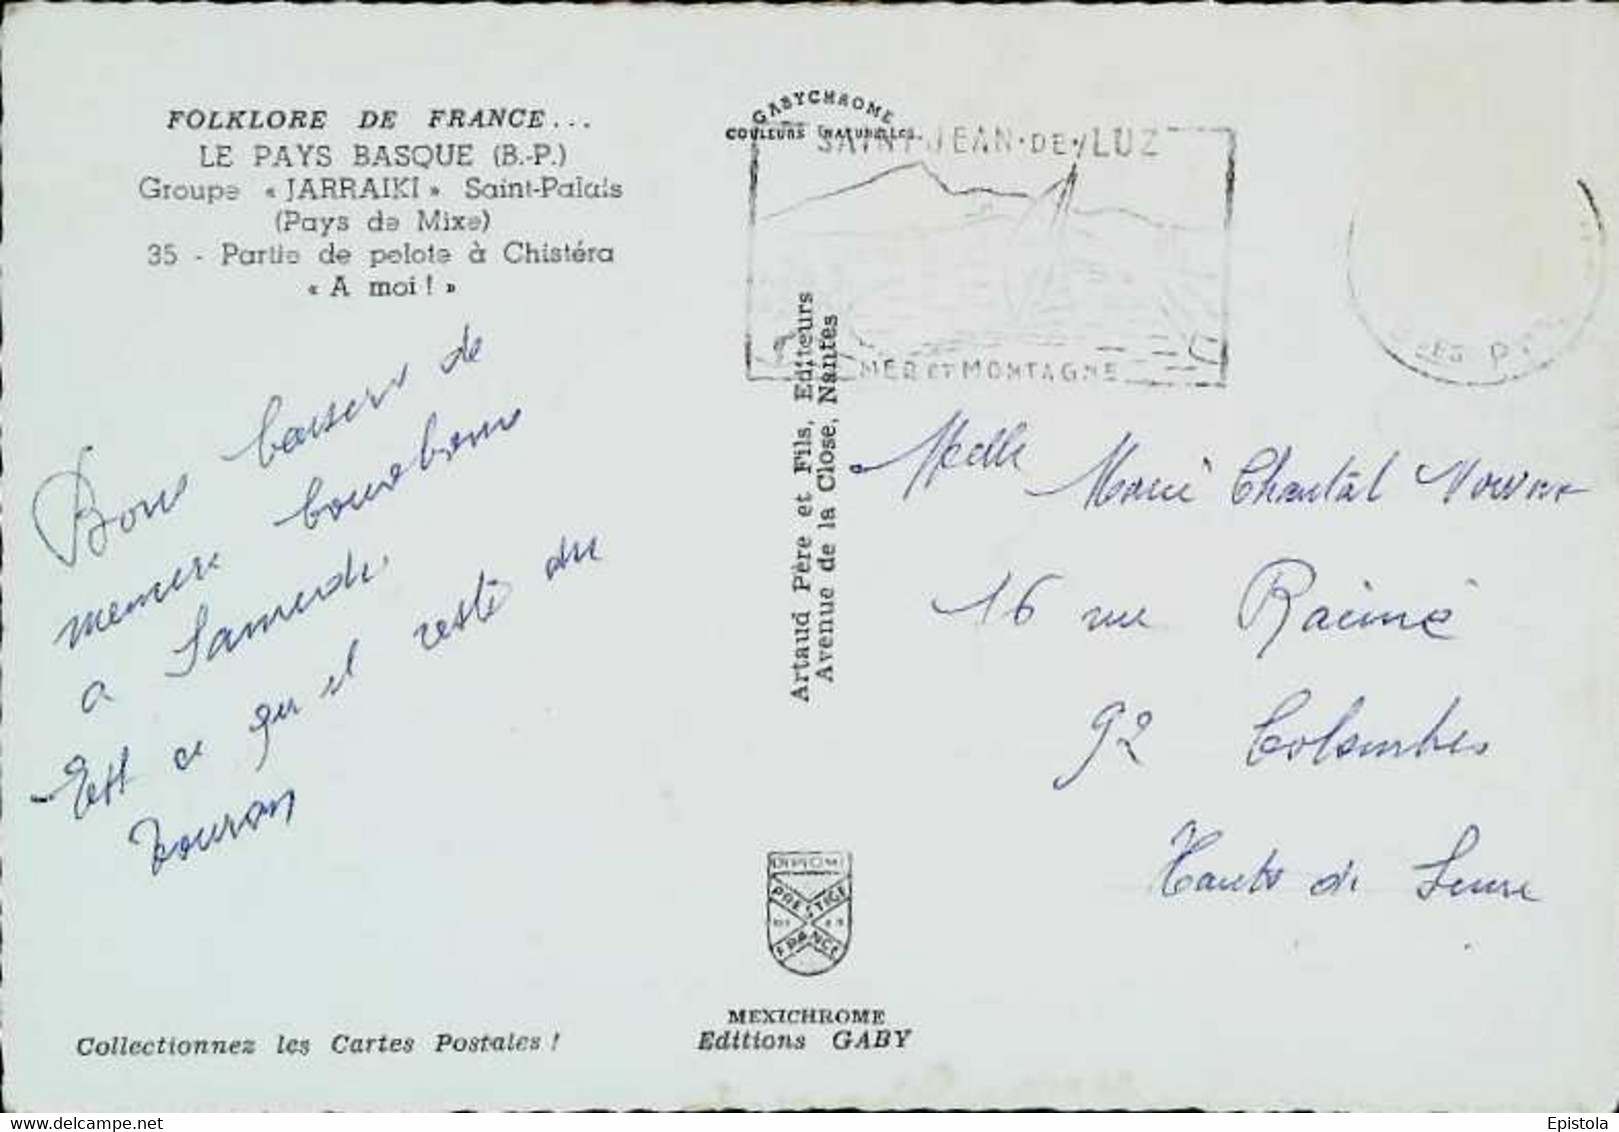 FOLKLORE DE FRANCE...
LE PAYS BASQUE (B.-P.)
Groupe « JARRAIKI » Saint-Palais
(Pays de Mixe)
35 - Partie de pelote à Chistéra
« A moi ! »
Bons baisers de
a Samedi.
Est ce qu il reste du
touron
Collectionnez les Cartes Postales !
GABYCHROME
COULEURS NATURELLES
SAINT-JEAN-DE-LUZ
MER ET MONTAGNE
Artaud Père et Fils, Editeurs
Avenue de la Close, Nantes
DIPLOME
PRESTIGE
FRANCE
MEXICHROME
Editions GABY
Melle Marie Chantal
16 rue Racine
92 Colombes
Hauts de Seine
Delcampe.net
Epistola